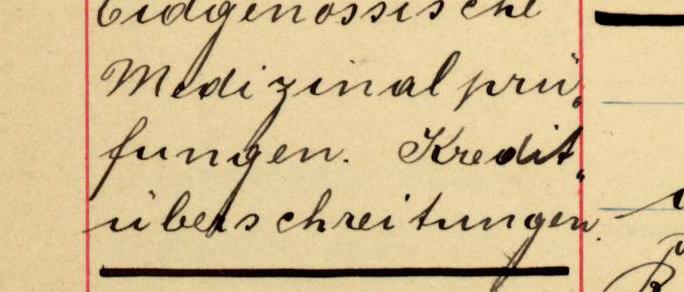 Eidgenössische
Medizinalprü„
fungen. Kredit„
überschreitungen.